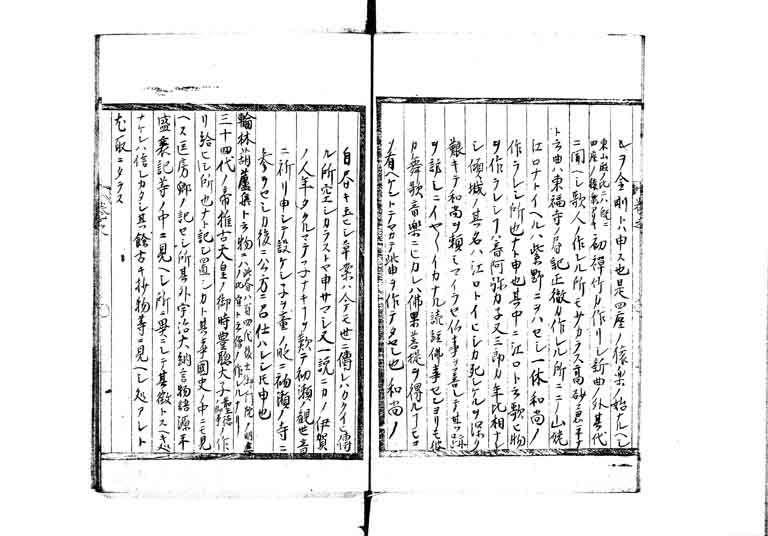 シヲ金剛トハ申ス也是四座ノ猿楽ノ始ナルヘシ
初禅竹カ作リシ新曲ノ外其代
ニ聞ヘシ歌人ノ作レル所モサカラス高砂
ト云曲ハ東福寺ノ書記正徹カ作レル所ニ山姥
江口ナトイヘルハ紫野ニヲハセシ一休和尚ノ
作ラレシ所也ナト申也其中ニ江口ト云歌ヒ物
ヲ作ラレシハ音阿弥カ子又三郎カ年比相ナレ
シ傾城ノ其名ハ江口トイヒシカ死シケルヲ深ク
歎キテ和尚ヲ頼ミマイラセ仏事ヲ善シテ其
ヲ訪シニイヤイカナル読誦佛事センヨリモ彼
カ舞歌音楽ニヒカレハ佛果菩提ヲ得ルコト
ヲ有ヘケントテヤカテ此曲ヲ作テタヒシ也和尚ノ
自書キ玉ヒシ草案ハ今モ世ニ傳レハカクイヒ傳
ル所空シカラストマ申サマシ又一説ニカノ伊賀
ノ人年タクルマテ子ナキコトヲ歎テ初瀬ノ観世音
ニ祈リ申シテ設ケシ子ヲ童ノ時ニ初瀬ノ寺ニ
参ラセシカ後ニ公方ニ召仕ハレシ氏申也
輪林葫蘆集ト云物ニハ
三十四代ノ帝推古天皇ノ御時豊聡太子ノ作
リ給ヒシ所也ナト記シ置シカト其事國史ノ中ニモ見
ヘス匡房卿ノ記セシ所其外宇治大納言物語源平
盛衰記等ノ中ニ見ヘシ所ニ異ニシテ其徴トスヘキ処
ナケレハ信シカタシ其餘古キ抄物等ニ見ヘシ処アレト
モ取ニタラス